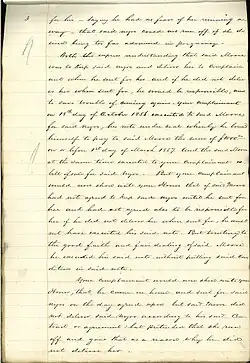 3
for her – saying he had no fear of her running a
way – that said negro could not run off if she de
sired being too far advanced in pregnancy.
With the express understanding that said Moore
was to keep said negro and deliver her to Complain
ant when he sent for her and if he did not deliv
er her when sent for, he would be responsible, and
to save trouble of coming again, Your Complainant
on 18th day of October 1856 executed to said Moore,
for said negro, his note under seal whereby he bound
himself to pay to said Moore the sum of
on or before 1st day of March 1857 And the said Moore
at the same time executed to your Complainant a
bill of sale for said negro. But your Complainant
would now show unto your Honor that if said Moore
had not agreed to keep said negro until he sent for
her and had not agreed also to be responsible for
her if he did not deliver her when sent for he would
not have executed his said note. But trusting to
the good faith and fair dealing of said Moore
he executed his said note without putting said con
dition in said note.
Your Complainant would now show unto your
Honor, that he came on home and sent for said
negro on the day agreed upon but said Moore did
not deliver said negro according to his said Con
tract or agreement but pretended that she run
off and gave that as a reason why he did
not deliver her.